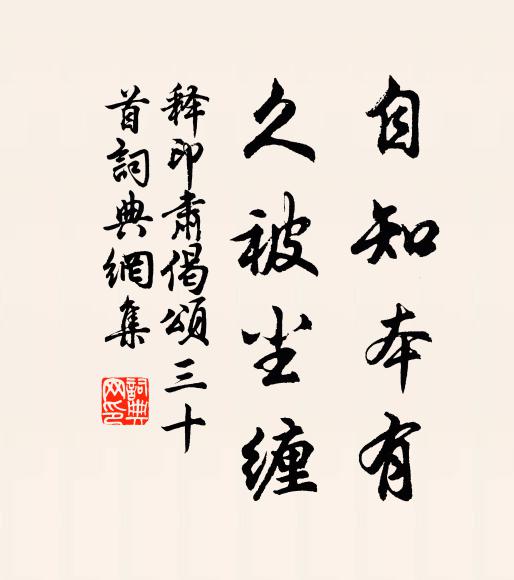 自知本有
久被尘缠
释印肃偈颂三十
首詞典網集
詞典网印